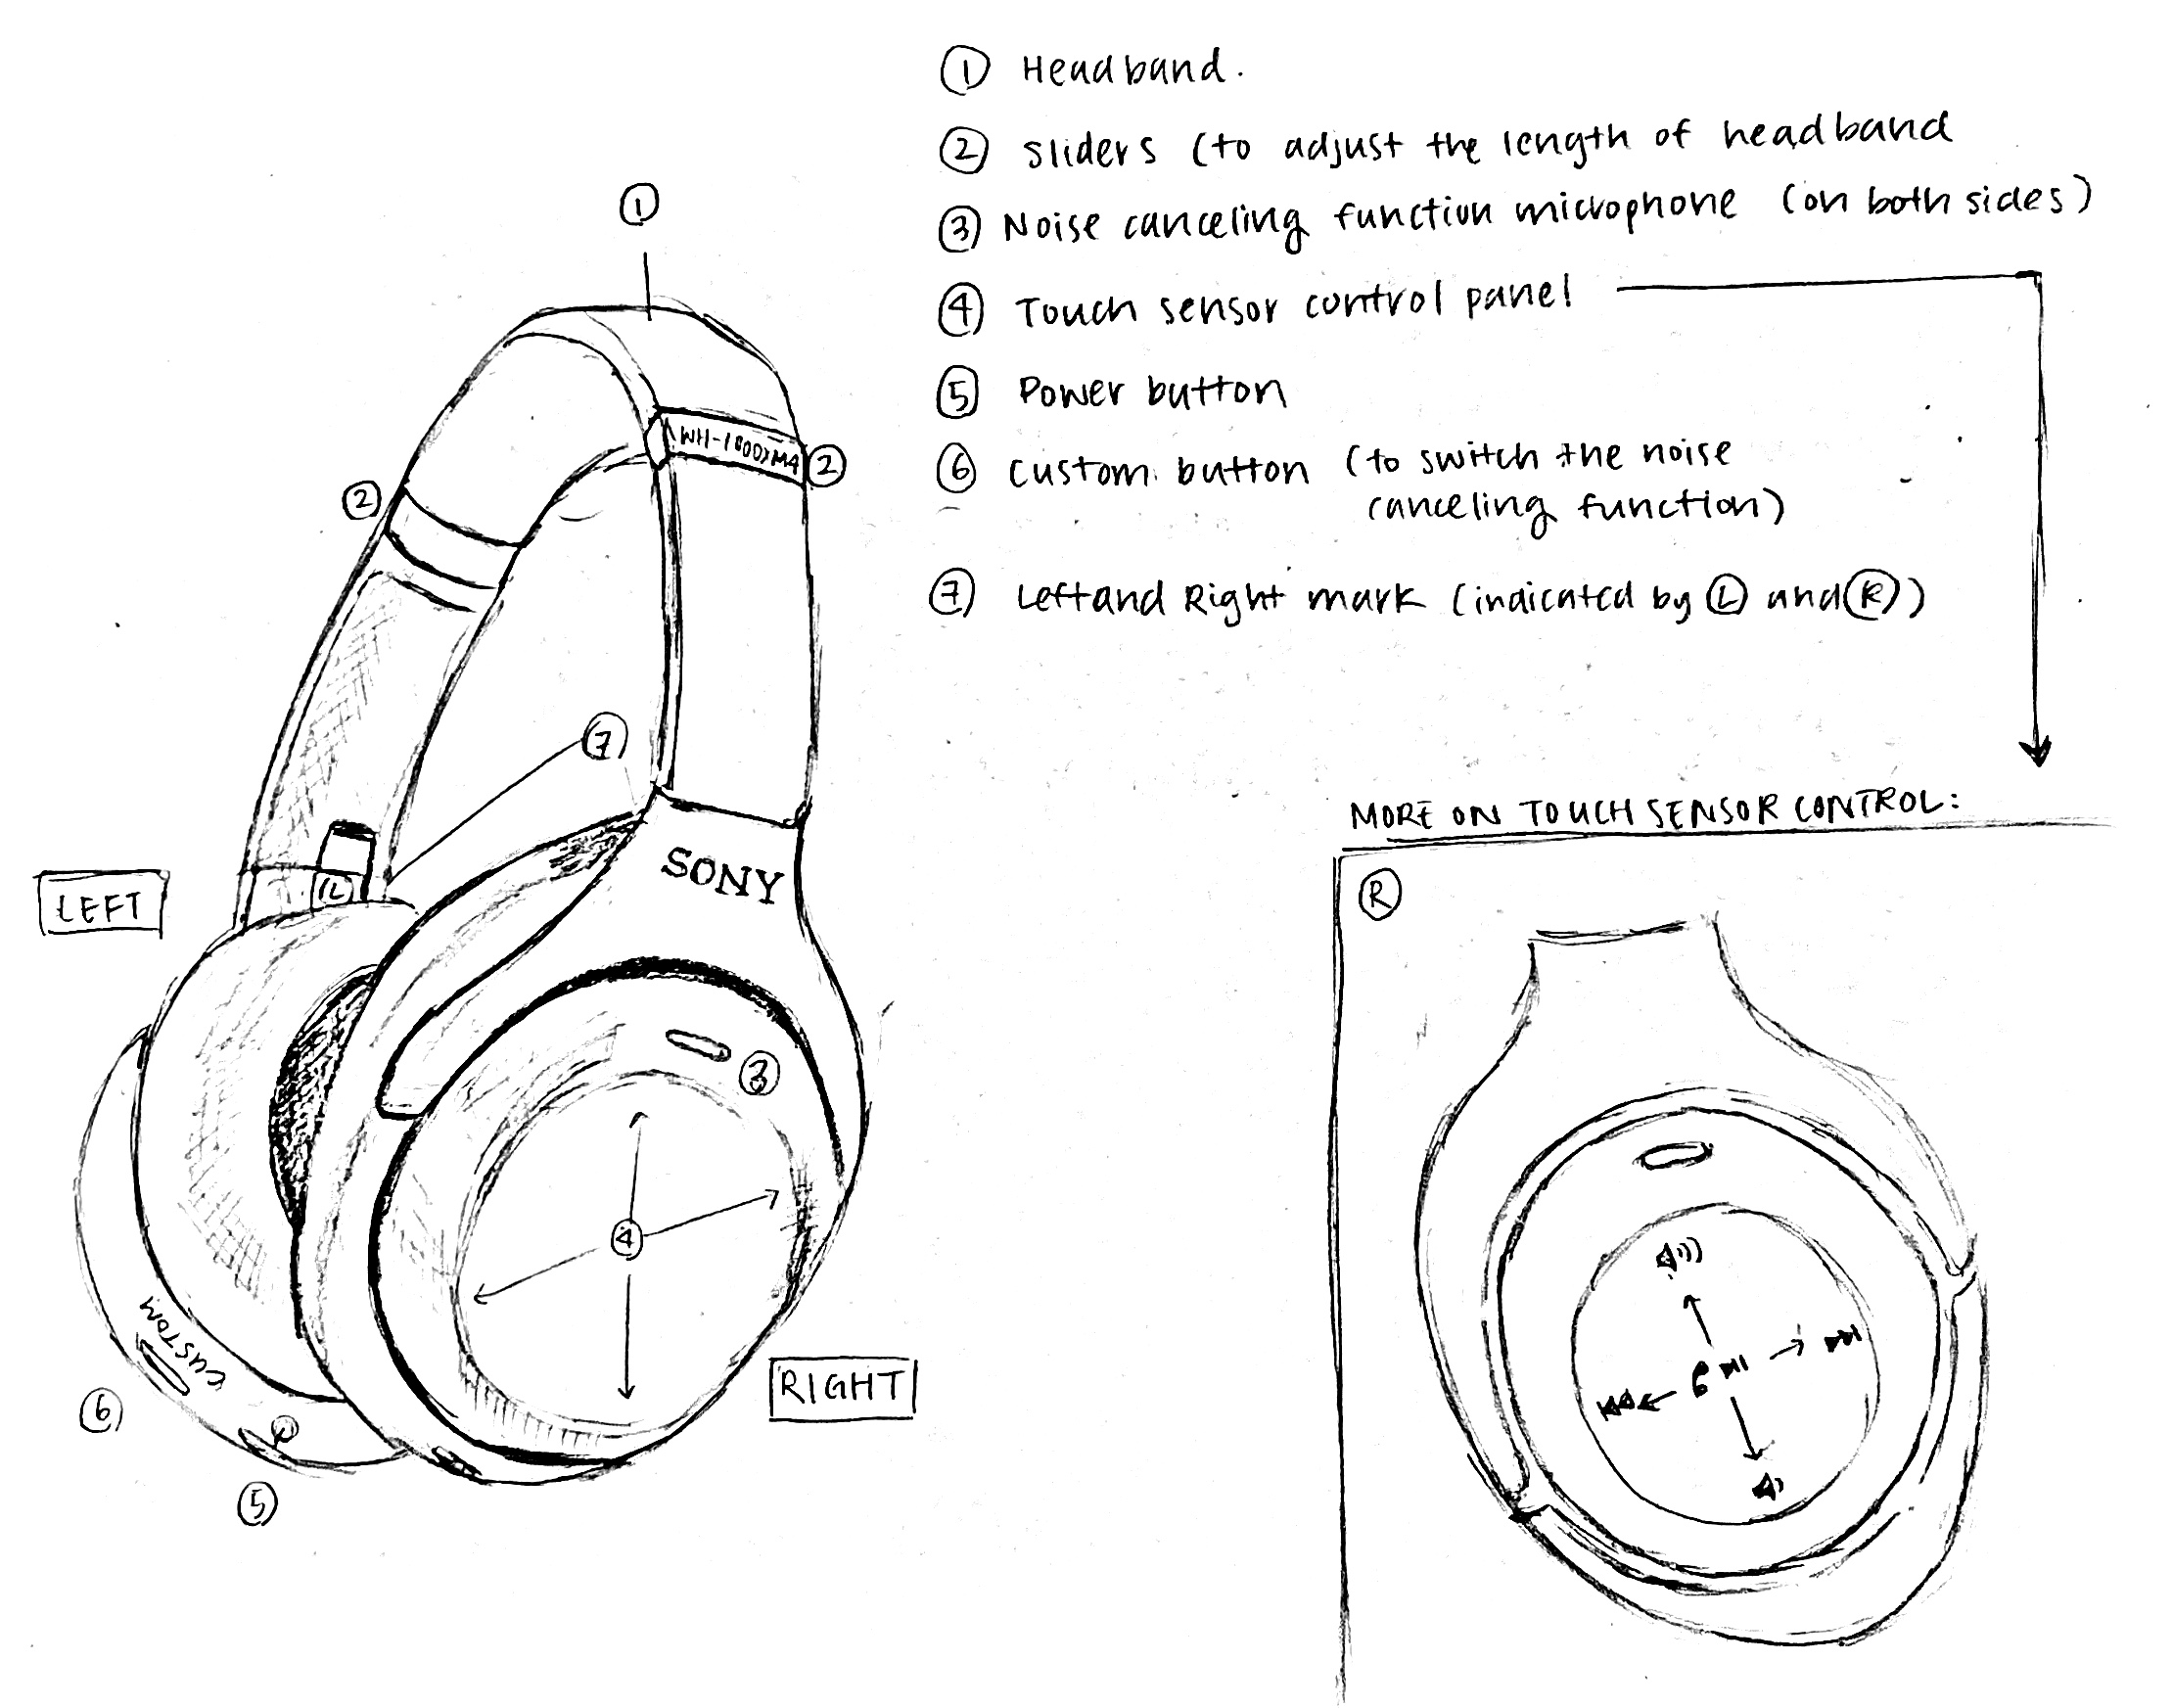 ① Headband.
② sliders (to adjust the length of headband
③ Noise canceling function microphone (on both sides)
④ Touch sensor control panel
⑤ Power button
⑥ Custom button (to switch the noise
canceling function)
⑦ Left and Right mark (indicated by Ⓛ and Ⓡ)
①
WH-1000XM4
②
②
⑦
SONY
LEFT
Ⓛ
③
④
RIGHT
CUSTOM
⑥
⑤
MORE ON TOUCH SENSOR CONTROL:
Ⓡ